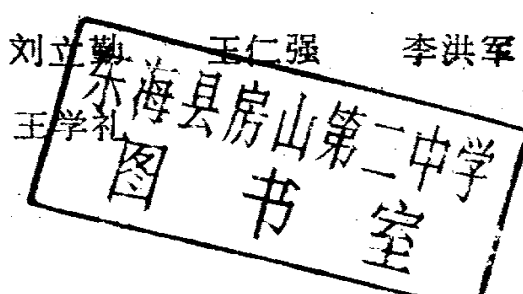 刘立勤 王仁强 李洪军
王学礼
东海县房山第二中学
图书室